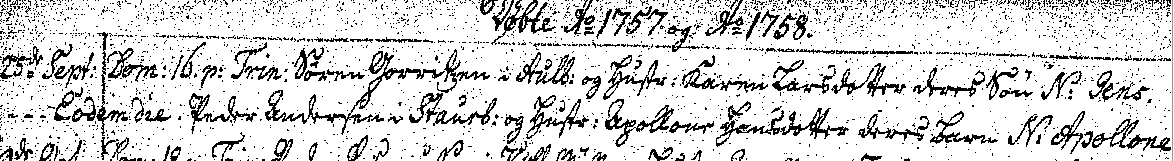 Døbte Ao 1757. og Ao 1758.
25de Sept: Dom: 16. p: Trin: Sören Gorritzen i Aulb: og Hustr: Karen Larsdotter deres Sön N: Jens.
- - - Eodem die. Peder Andersen i Staurb: og Hustr: Apollone Hansdotter deres Barn N: Apollone